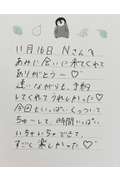 11月16日 Nさんへ
あみに会いに来てくれて
ありがとうー♡
遠いながらも、予約
してくれてうれしかった♡
今回といっぱいくっついて
ちゅーして、時間いっぱい
いちゃいちゃできて、
すごく楽しかった♡